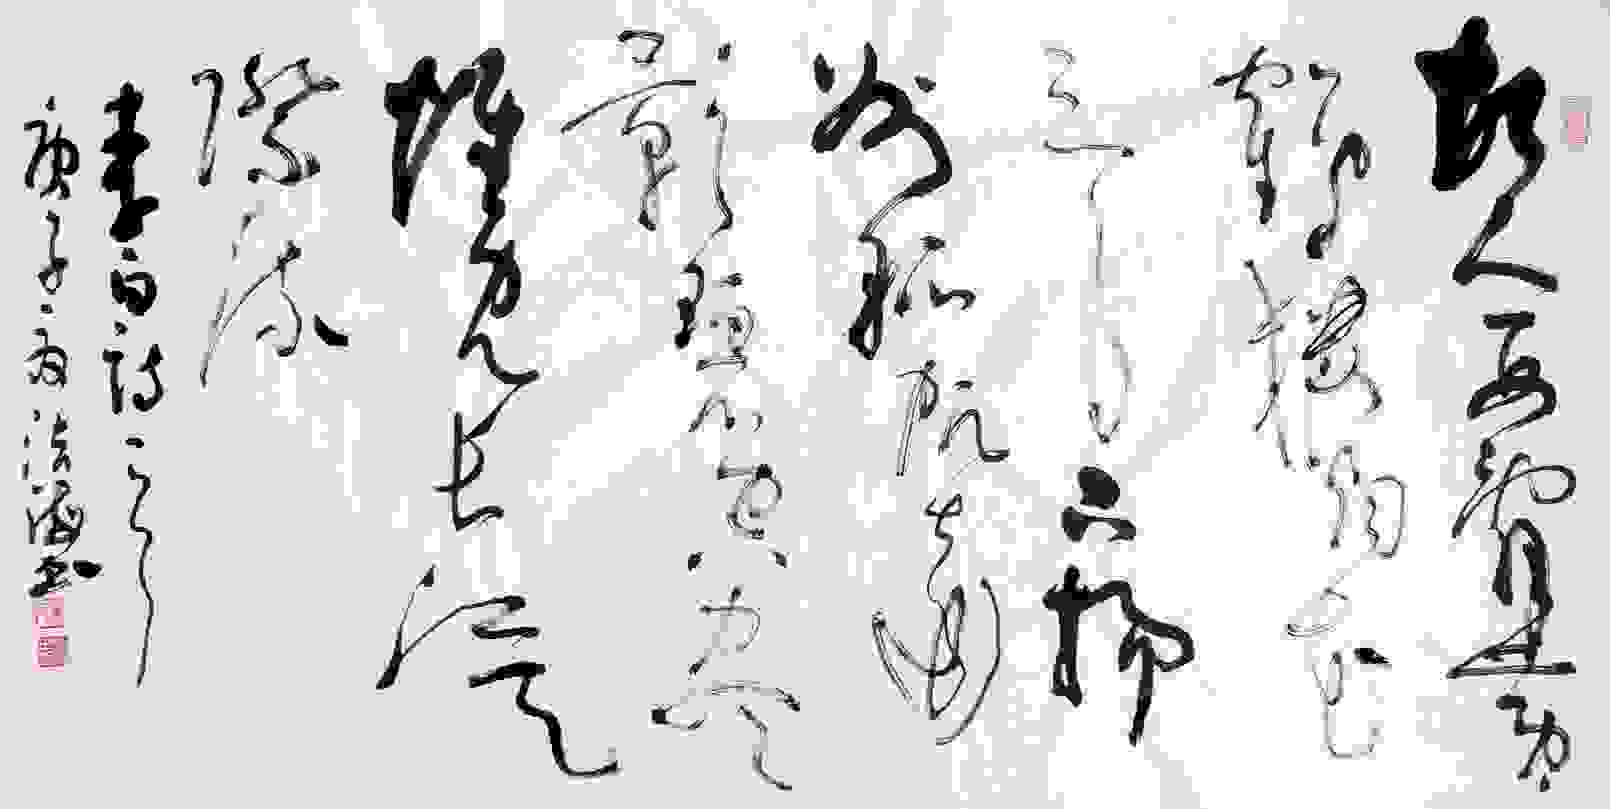 故人西辭黃
鶴樓煙花
三月下揚
州孤帆遠
影碧空盡
惟見長江天
際流
李白詩一首
庚子夏法海書